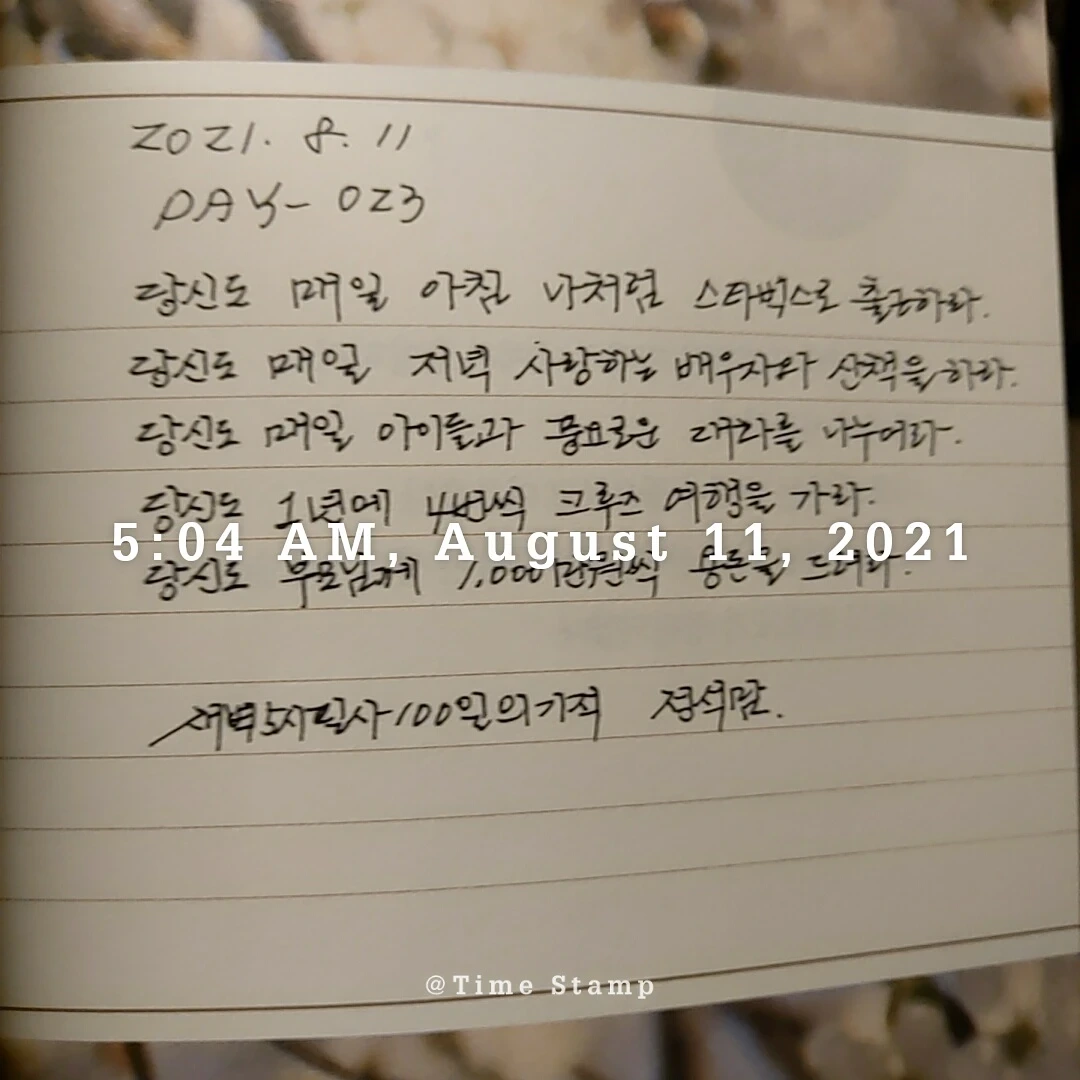 2021. 8. 11
DAY- 023
당신도 매일 아침 나처럼 스타벅스로 출근하라.
당신도 매일 저녁 사랑하는 배우자와 산책을 하라.
당신도 매일 아이들과 풍요로운 대화를 나누어라.
당신도 1년에 4번씩 크루즈 여행을 가라.
5:04 AM, August 11, 2021
당신도 부모님께 1,000만원씩 용돈을 드려라.
새벽5시필사100일의기적
@Time Stamp